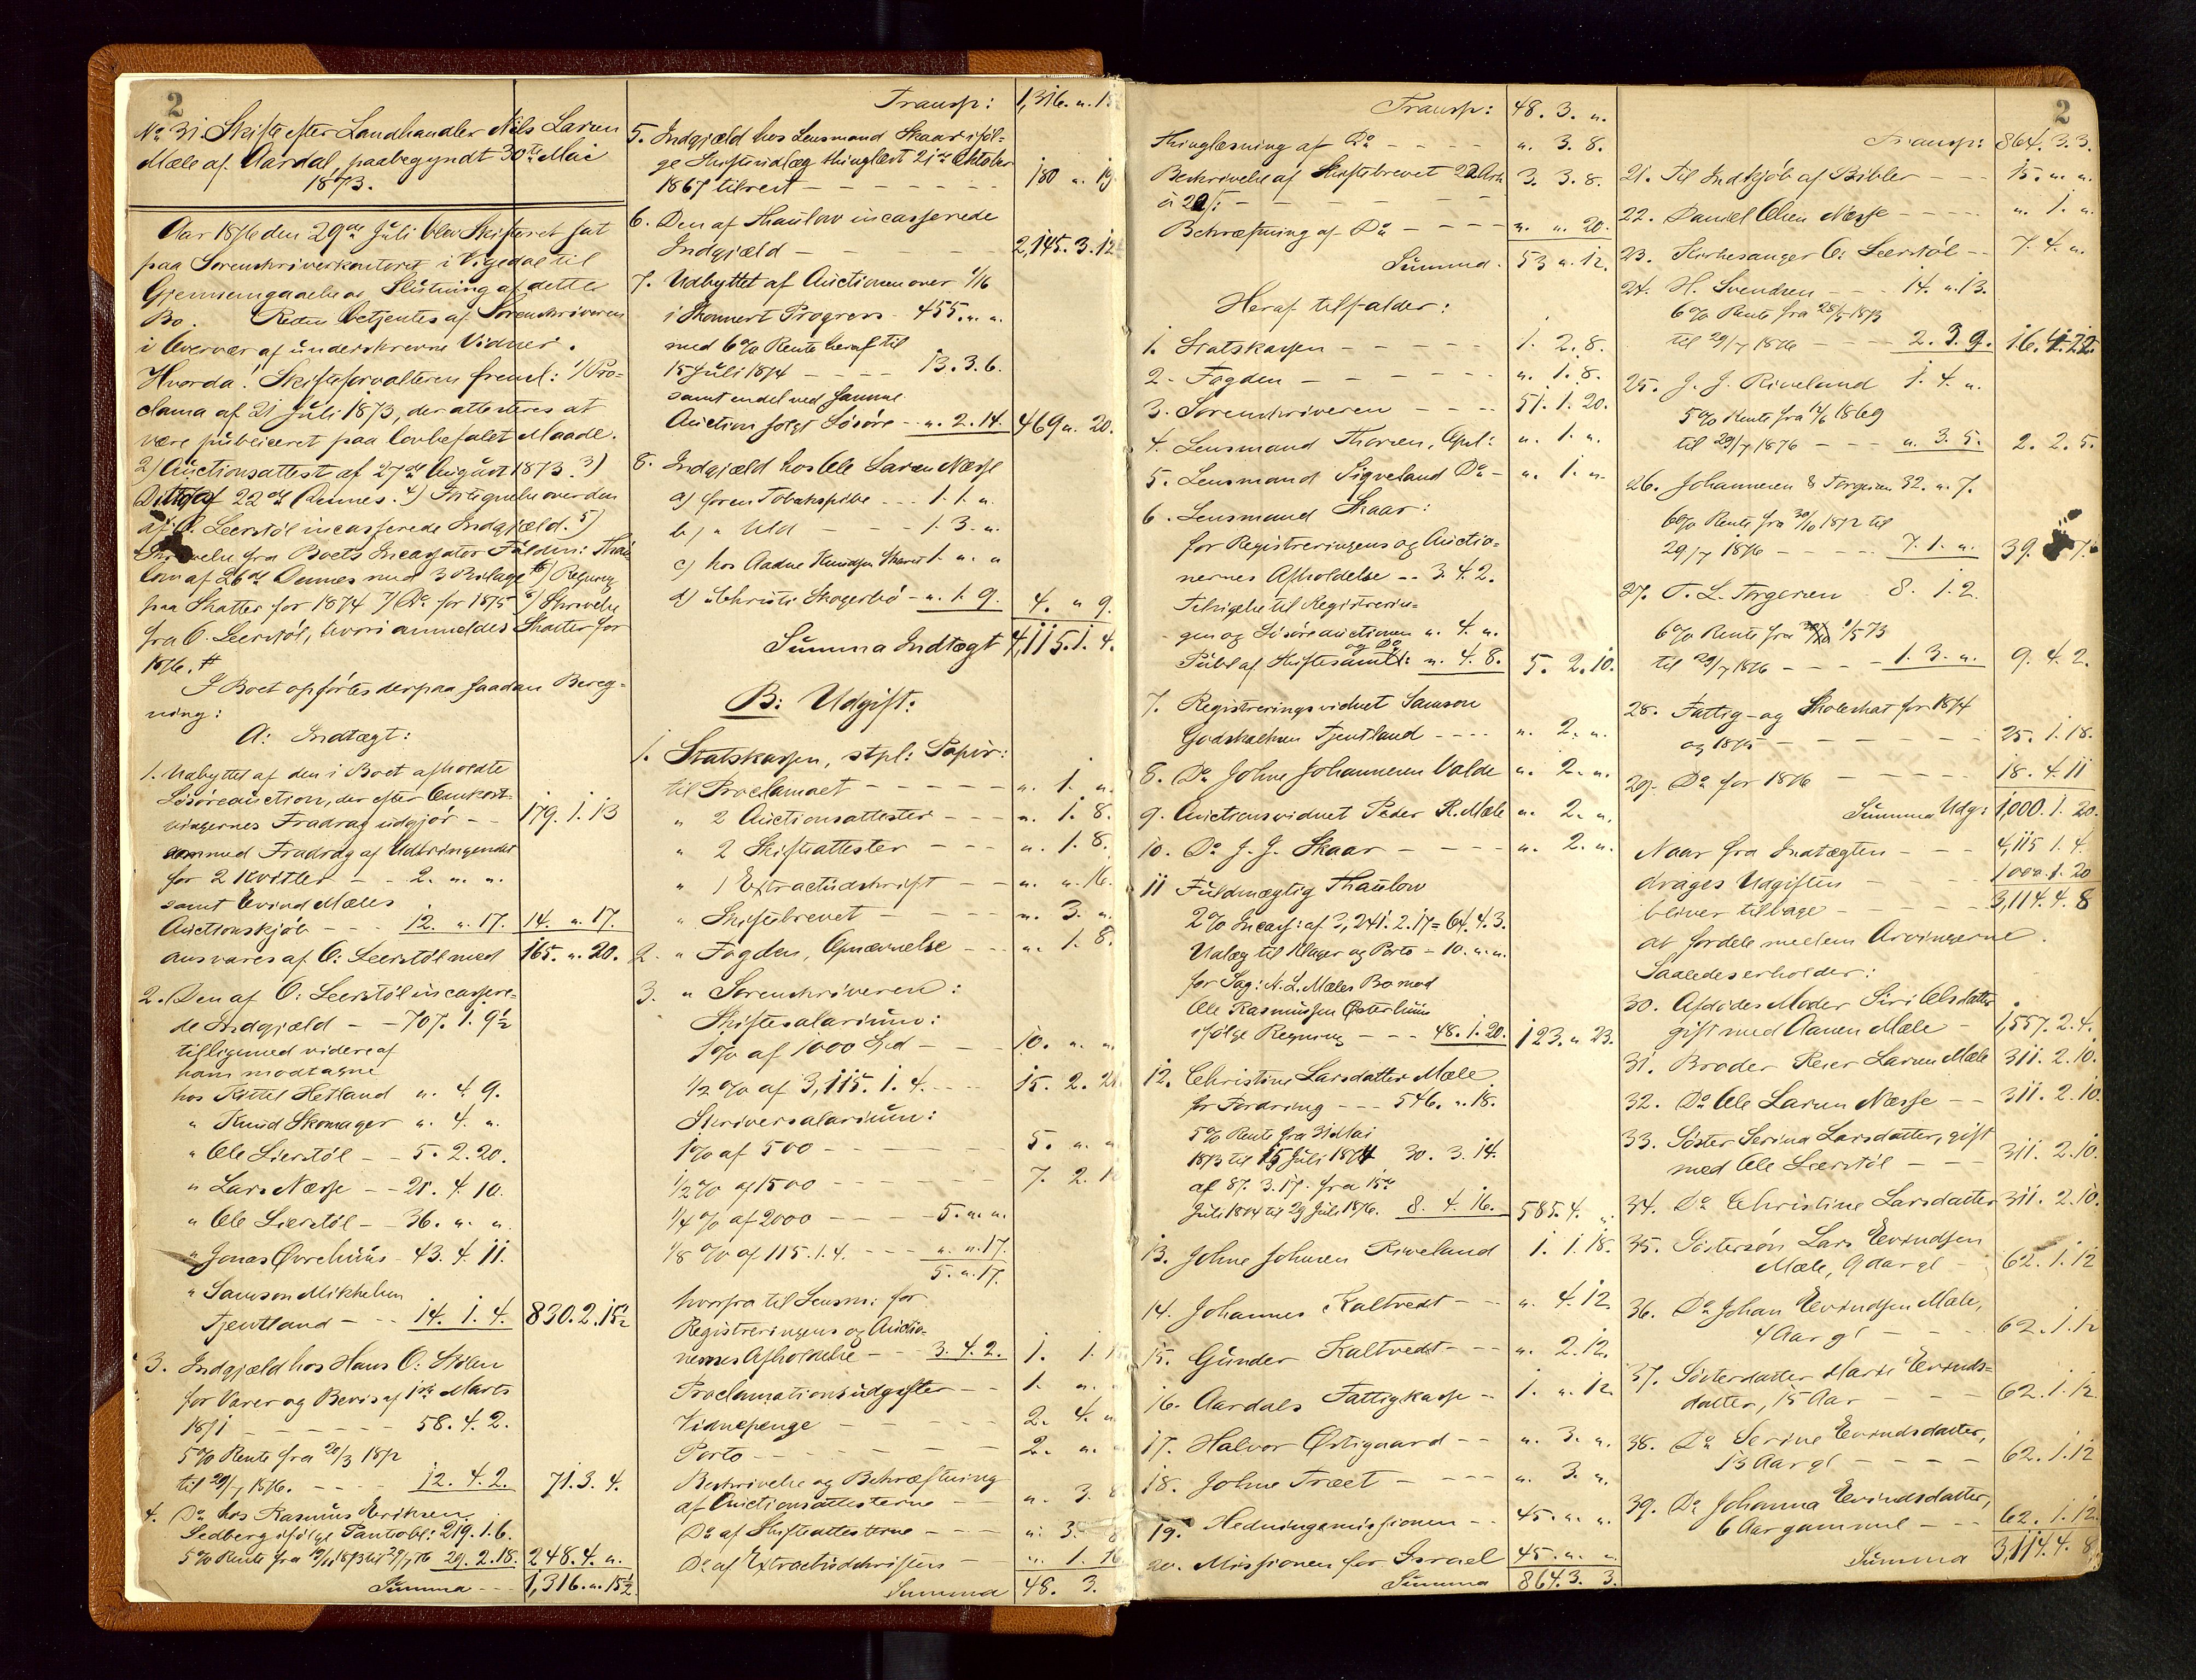 2
No 31. Skifte efter Landhandler Nils Larsen
Mæle af Aardal, paabegyndt 30te Mai
1873.
Aar 1876 den 29de Juli blev Skifteret sat
paa Sorenskriverkontoret i Vigedal til
Gjennemgaaelse og Slutning af dette
Bo. Retten betjentes af Sorenskriveren
i Overvær af underskrevne Vidner.
Hvorda: Skifteforvalteren freml: 1) Pro-
clama af 21 Juli 1873, der attesteres at
være publiceret paa lovbefalet Maade.
2) Auctionsattest af 27de August 1873. 3)
Ditto af 22de Dennes. 4) Fortegnelse over den
af O. Leerstöl incasserede Indgjæld. 5)
Skrivelse fra Boets Incassator Fuldm: Thau
low af 26de Dennes med 3 Bilage 6) Regning
paa Skatter for 1874 7) Do for 1875 8) Skrivelse
fra O. Leerstöl, hvori anmeldes Skatter for
1876. #
I Boet opførtes derpaa saadan Bereg-
ning:
A: Indtægt:
1. Udbyttet af den i Boet afholdte
Lösöreauction, der efter Omkost-
ningernes Fradrag udgjør - - 179. 1. 13
som med Fradrag af Udbringendet
for 2 Kvitler - - 2. „. „.
samt Eivind Mæles
Auctionskjöb - - - 12. „. 17. 14. „. 17.
ansvares af O: Leerstöl med 165. „. 20.
2. Den af O: Leerstöl incassere-
de Indgjæld - - 707. 1. 9½
tilligemed videre af
ham modtagne
hos Kittil Hetland „. 4. 9.
„ Knud Skomager „. 4. „.
„ Ole Lierstöl - - 5. 2. 20.
„ Lars Næsse - - 21. 4. 10.
„ Ole Lierstöl - - 36. „. „.
„ Jonas Øvrehuus - 43. 4. 11.
„ Samson Mikkelsen
Tjentland - - - 14. 1. 4. 830. 2. 15½
3. Indgjæld hos Hans O: Stölen
for Varer og Bevis af 1ste Marts
1871 - - - - - - 58. 4. 2.
5% Rente fra 20/3 1872
til 29/7 1876. - - - - 12. 4. 2. 71. 3. 4.
4. Do hos Rasmus Eriksen
Sedberg ifölge Pantobl: 219. 1. 6.
5% Rente fra 19/11 1873 til 29/7 76 29. 2. 18. 248. 4. „.
Summa - - - 1,316. „. 15½
Transp: 1,316. „. 15
5. Indgjæld hos Lensmand Skaar iföl-
ge Skifteudlæg thinglæst 21de Oktober
1867 tilrest - - - - - - - 180 „. 19.
6. Den af Thaulow incasserede
Indgjæld - - - - - 2,145. 3. 12
7. Udbyttet af Auctionen over 1/16
i Skonnert Progress - 455. „. „.
med 6% Rente heraf til
15 Juli 1874 - - - - 13. 3. 6.
samt endel ved samme
Auction solgt Lösöre - - „. 2. 14. 469 „. 20.
8. Indgjæld hos Ole Larsen Næsse
a) for en Tobakspibe - - - 1. 1. „.
b) „ Uld - - - - 1. 3. „.
c) hos Aadne Knudsen 1. „. „
d) „ Christi Skogerbö - „. 1. 9. 4. „ 9.
Summa Indtægt 4,115. 1. 4.
B: Udgift:
1. Statskassen, stpl: Papir:
til Proclamaet - - - - - „. 1. „.
„ 2 Auctionsattester - - - „. 1. 8.
„ 2 Skifteattester - - - „. 1. 8.
„ 1 Extractudskrift - - „. „. 16.
„ Skiftebrevet - - - - „. 3. „.
2. „ Fogden, Opnævnelse - - „. 1. 8.
3. „ Sorenskriveren:
Skiftesalarium:
1% af 1000 Spd - - - 10. „. „
½% af 3,115. 1. 4. - - - 15. 2. 21
Skriversalarium:
1% af 500 - - - - - - 5. „. „
½% af 1500 - - - - - 7. 2. 1
¼% af 2000 - - - - - 5. „. „.
1/8 % af 115. 1. 4. - - - „. „. 17.
5. „. 17.
hvorfra til Lensm: for
Registreringens og Auctio-
nernes Afholdelse - - 3. 4. 2. 1. 1. 1
Proclamationsudgifter - - 1. „.
Vidnepenge - - - - - 2. 4. „
Porto - - - - - - - 2. „.
Beskrivelse og Bekræftning
af Auctionsattesterne - - „. 3. 8
Do af Skifteattesterne - - - „. 3. 8
Do af Extractudskriften - „. 1. 16
Summa 48. 3.
Transp: 48. 3. „.
Thinglæsning af Do - - - - „. 3. 8.
Beskrivelse af Skiftebrevet 22 Ark 3. 3. 8.
à - - - - - -
Bekræftning af Do - - - - „. „. 20.
Summa. 53 „. 12.
Heraf tilfalder:
1. Statskassen - - - - - 1. 2. 8.
2. Fogden - - - - - - „. 1. 8.
3. Sorenskriveren - - - - 51. 1. 20.
4. Lensmand Thorsen, Opl: „. 1. „.
5. Lensmand Sigveland Do - „. 1. „.
6. Lensmand Skaar:
for Registreringens og Auctio-
nernes Afholdelse - - 3. 4. 2.
Tilsigelse til Registrerin-
gen og Lösöreauctionen „. 4. „.
Publ af Skiftesaml: og Do „. 4. 8. 5. 2. 10.
7. Registreringsvidnet Samson
Godskalksen Tjentland - - - - „. 2. „.
8. Do Johne Johannesen Valde „. 2. „.
9. Auctionsvidnet Peder R. Mæle „. 2. „.
10. Do J. J. Skaar - - - - „. 2. „.
11 Fuldmægtig Thaulow
2% Incass: af 3,241. 2. 17 = 64. 4. 3.
Udlæg til Klager og Porto - 10. „. „.
for Sag: N. L. Mæles Bo mod
Ole Rasmussen Österhuus
ifölge Regning - - - 48. 1. 20. 123. „. 23.
12. Christine Larsdatter Mæle
for Fordring - - - 546. „. 18.
5% Rente fra 31 Mai
1873 til 15 Juli 1874 30. 3. 14.
af 87. 3. 17. fra 15de
Juli 1874 til 29 Juli 1876. 8. 4. 16. 585. 4. „.
13. Johne Johnsen Riveland 1. 1. 18.
14. Johannes Kaltvedt - - „. 4. 12.
15. Gunder Kaltvedt - - - „. 2. 12.
16. Aardals Fattigkasse - - 1. „. 12.
17. Halvor Östigaard - - „. 3. „.
18. Johne Træet - - - - „. 3. „.
19. Hedningemissionen - - 45. „. „.
20. Missionen for Israel 45. „. „.
Summa 864. 3. 3.
2
Transp: 864. 3. 3.
21. Til Indkjöb af Bibler - - - 15. „. „.
22. Daniel Olsen Næsse - - - - „. 1. „.
23. Kirkesanger O: Leerstöl - - 7. 4. „.
24. H. Svendsen - - - 14. „. 13.
6% Rente fra 28/5 1873
til 29/7 1876 - - - 2. 3. 9. 16. 4. 22.
25. J. J. Riveland 1. 4. „.
5% Rente fra 12/6 1869
til 29/7 1876 - - - „. 3. 5. 2. 2. 5.
26. Johannesen & Torgersen 32. „. 7.
6% Rente fra 30/10 1872 til
29/7 1876 - - - - - 7. 1. „. 39. 7.
27. T. L. Torgersen 8. 1. 2.
6% Rente fra 1/5 73
til 29/7 1876 - - - - 1. 3. „. 9. 4. 2.
28. Fattig- og Skoleskat for 1874
og 1875 - - - - - - 25. 1. 18.
29. Do for 1876 - - - - - 18. 4. 11
Summa Udg: 1,000. 1. 20.
Naar fra Indtægten - - - 4,115 1. 4.
drages Udgiften - - - 1000. 1. 20
bliver tilbage - - - - - 3,114. 4. 8
at fordele mellem Arvingerne.
Saaledes erholder:
30. Afdödes Moder Siri Olsdatter
gift med Aanen Mæle - 1,557. 2. 4.
31. Broder Reier Larsen Mæle 311. 2. 10.
32. Do Ole Larsen Næsse - - 311. 2. 10.
33. Söster Serina Larsdatter, gift
med Ole Leerstöl - - - 311. 2. 10.
34. Do Christine Larsdatter 311. 2. 10.
35. Söstersön Lars Eivindsen
Mæle, 9 Aar gl - 62. 1. 12
36. Do Johan Eivindsen Mæle,
4 Aar gl - - - - 62. 1. 12
37. Sösterdatter Marte Eivinds-
datter, 15 Aar - - 62. 1. 12
38. Do Serine Eivindsdatter,
13 Aar gl - - - - 62. 1. 12
39. Do Johanna Eivindsdatter,
6 Aar gammel - - - 62. 1. 12.
Summa 3,114. 4. 8.